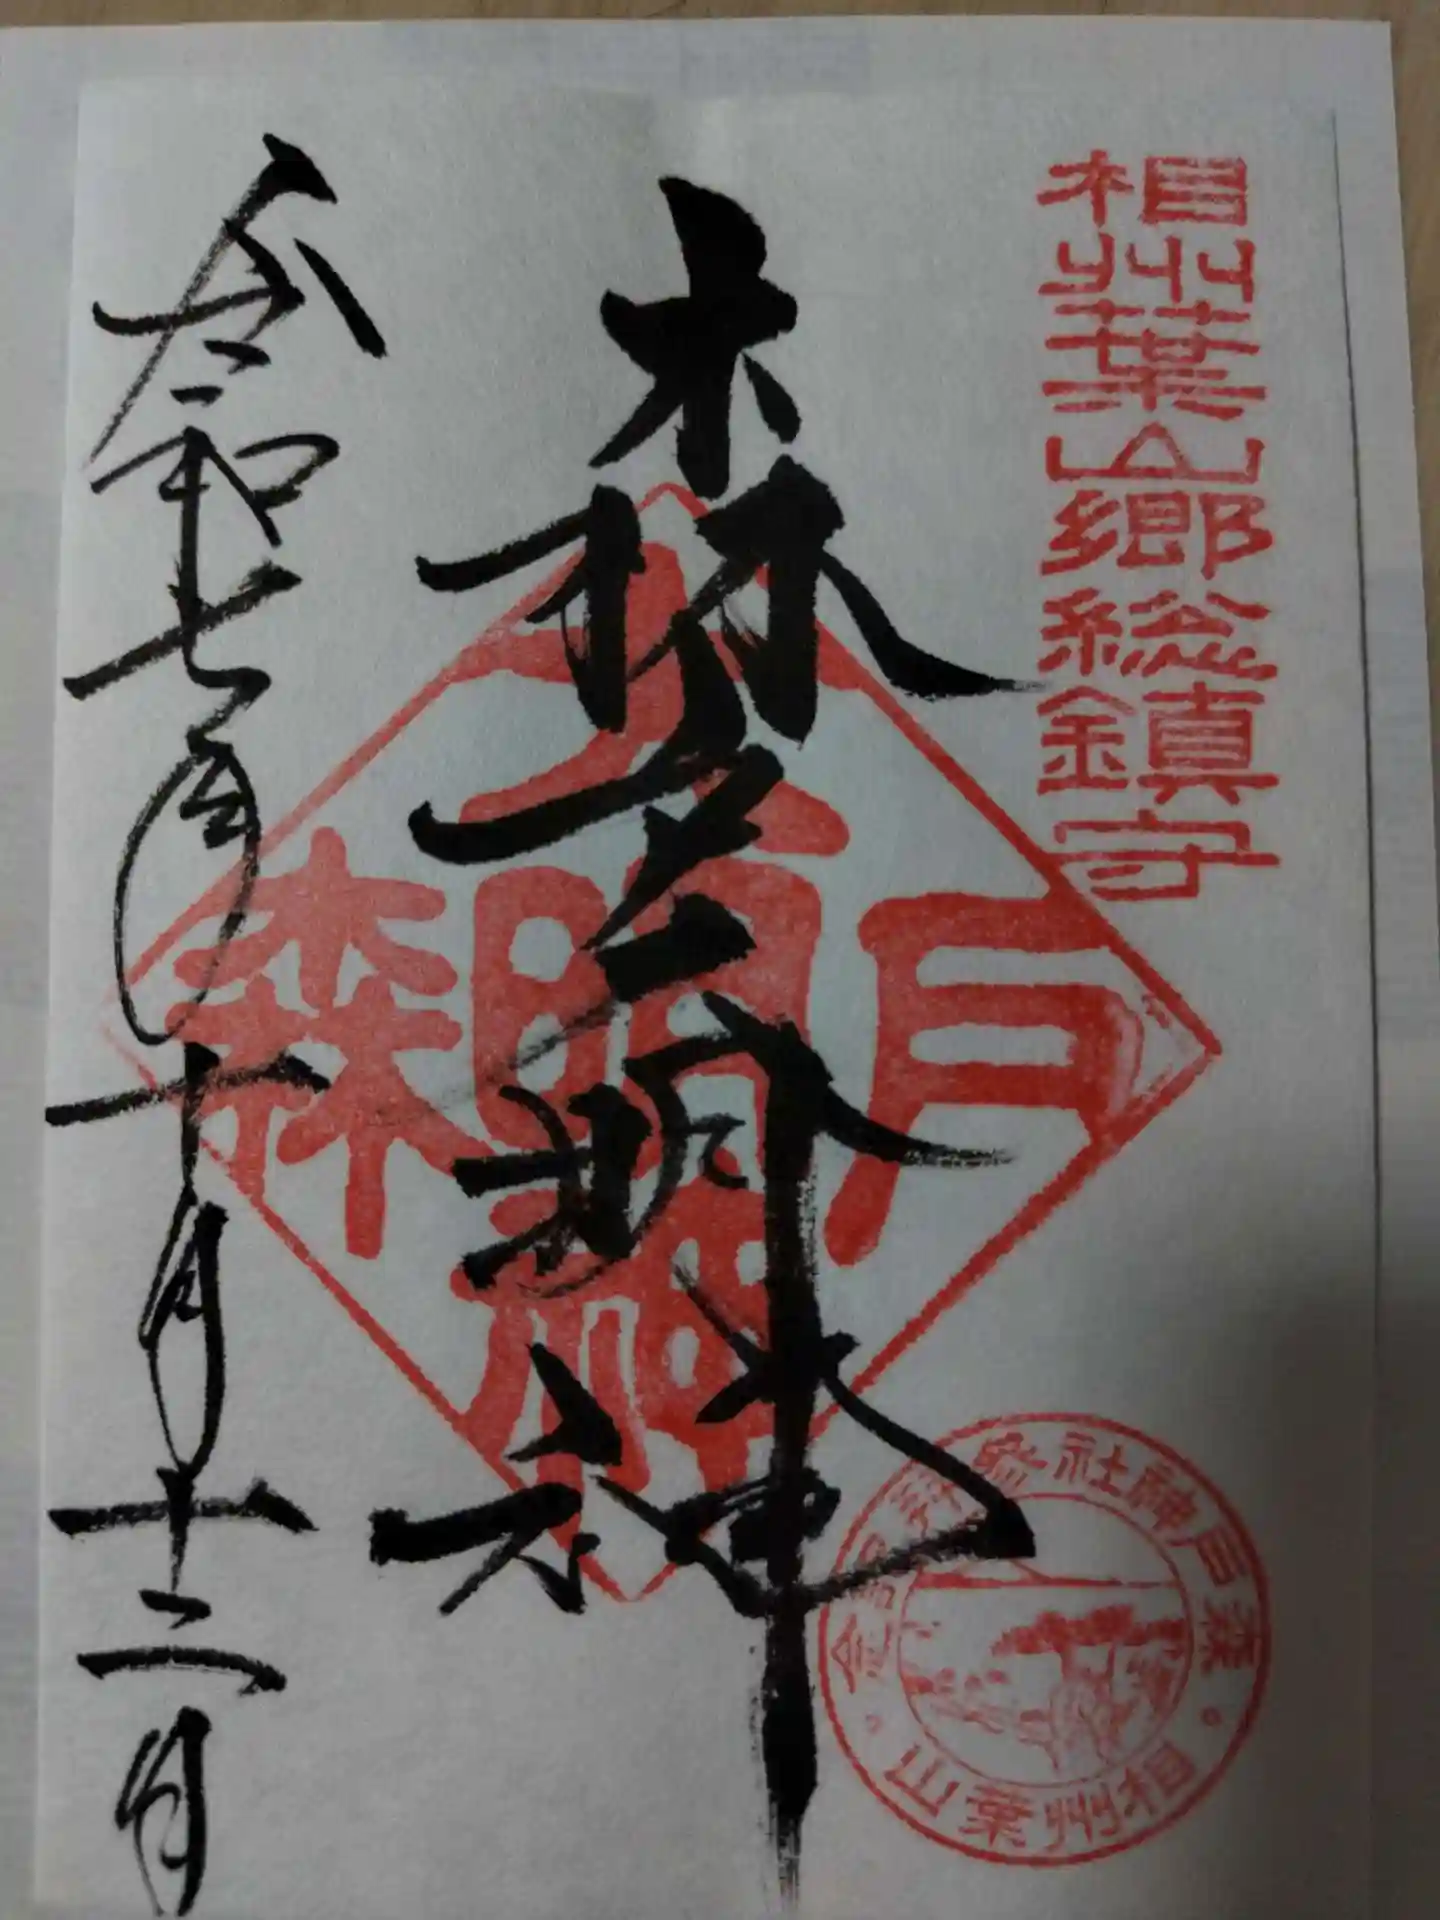 相州葉山郷総鎮守
森戸大明神
令和七年十月十二日
森戸
大明神
森戸神社參拜記念
相州葉山